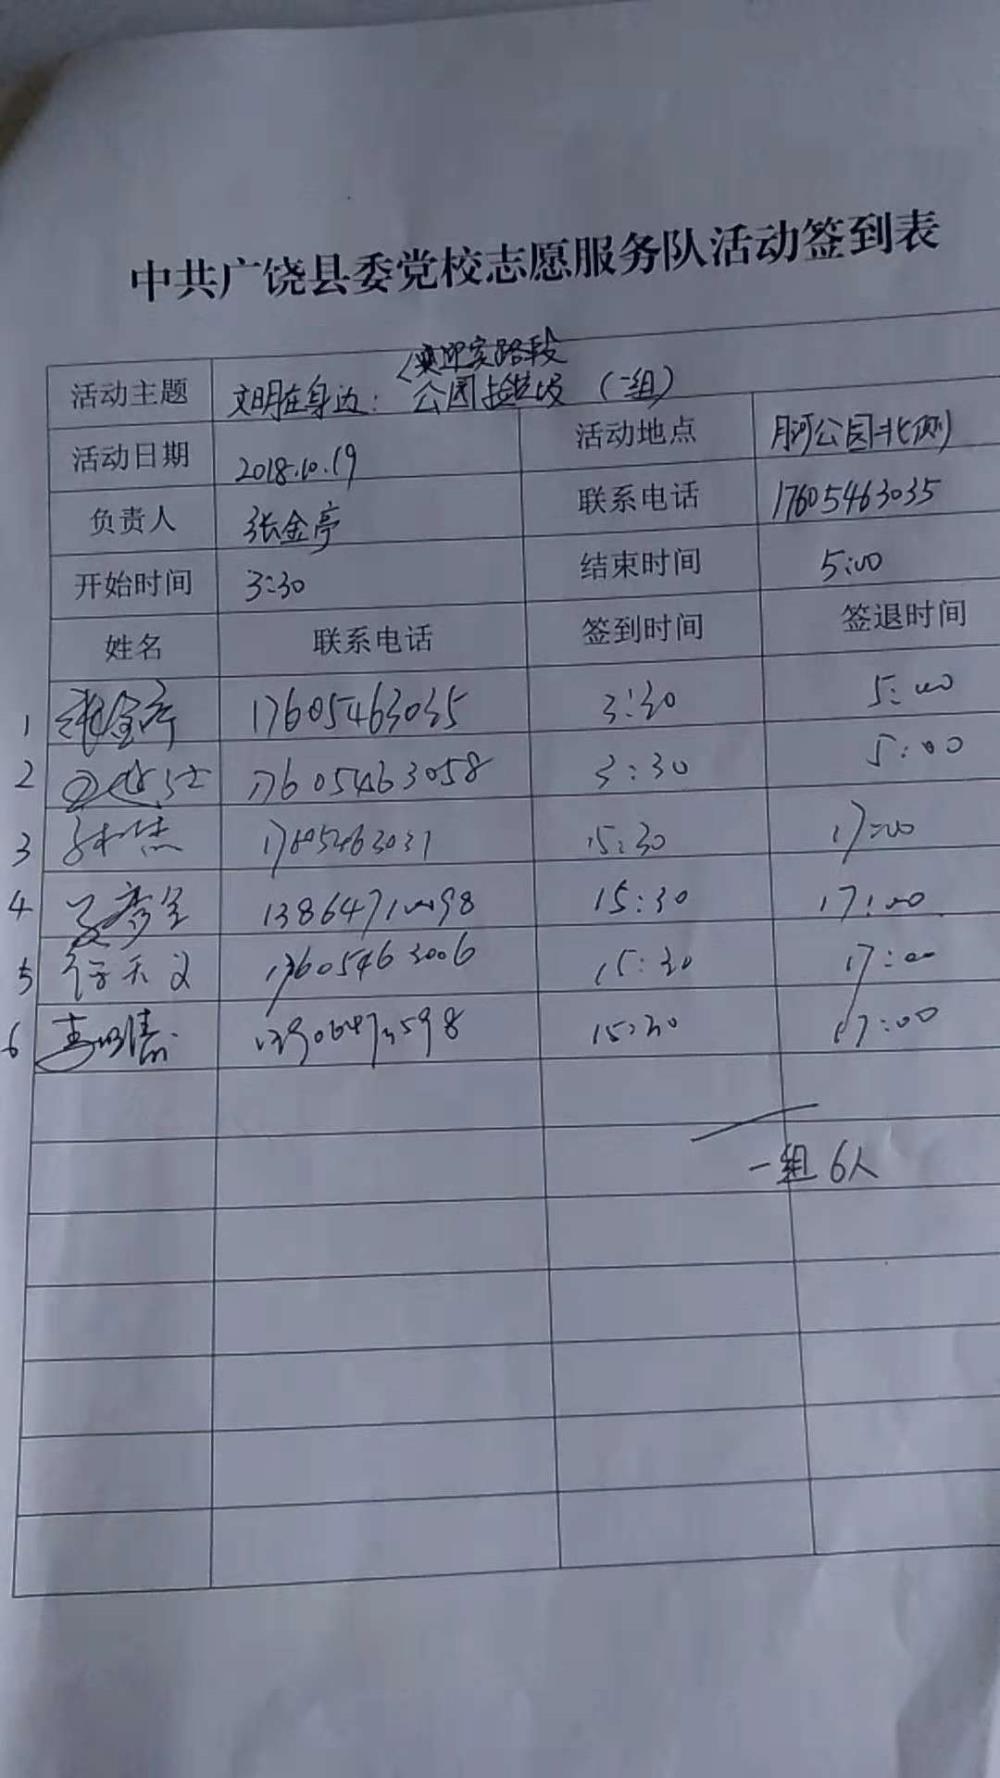 中共广饶县委党校志愿服务队活动签到表
路段
活动主题 文明在身边：公园捡垃圾（一组）
活动日期 2018.10.19 活动地点 月河公园北侧
负责人 张金亭 联系电话 17605463035
开始时间 3:30 结束时间 5:00
姓名 联系电话 签到时间 签退时间
1 张金亭 17605463035 3:30 5:00
2 17605463058 3:30 5:00
3 17605463031 15:30 17:00
4 13864710098 15:30 17:00
5 17605463006 15:30 17:00
6 15:30 17:00
一组6人